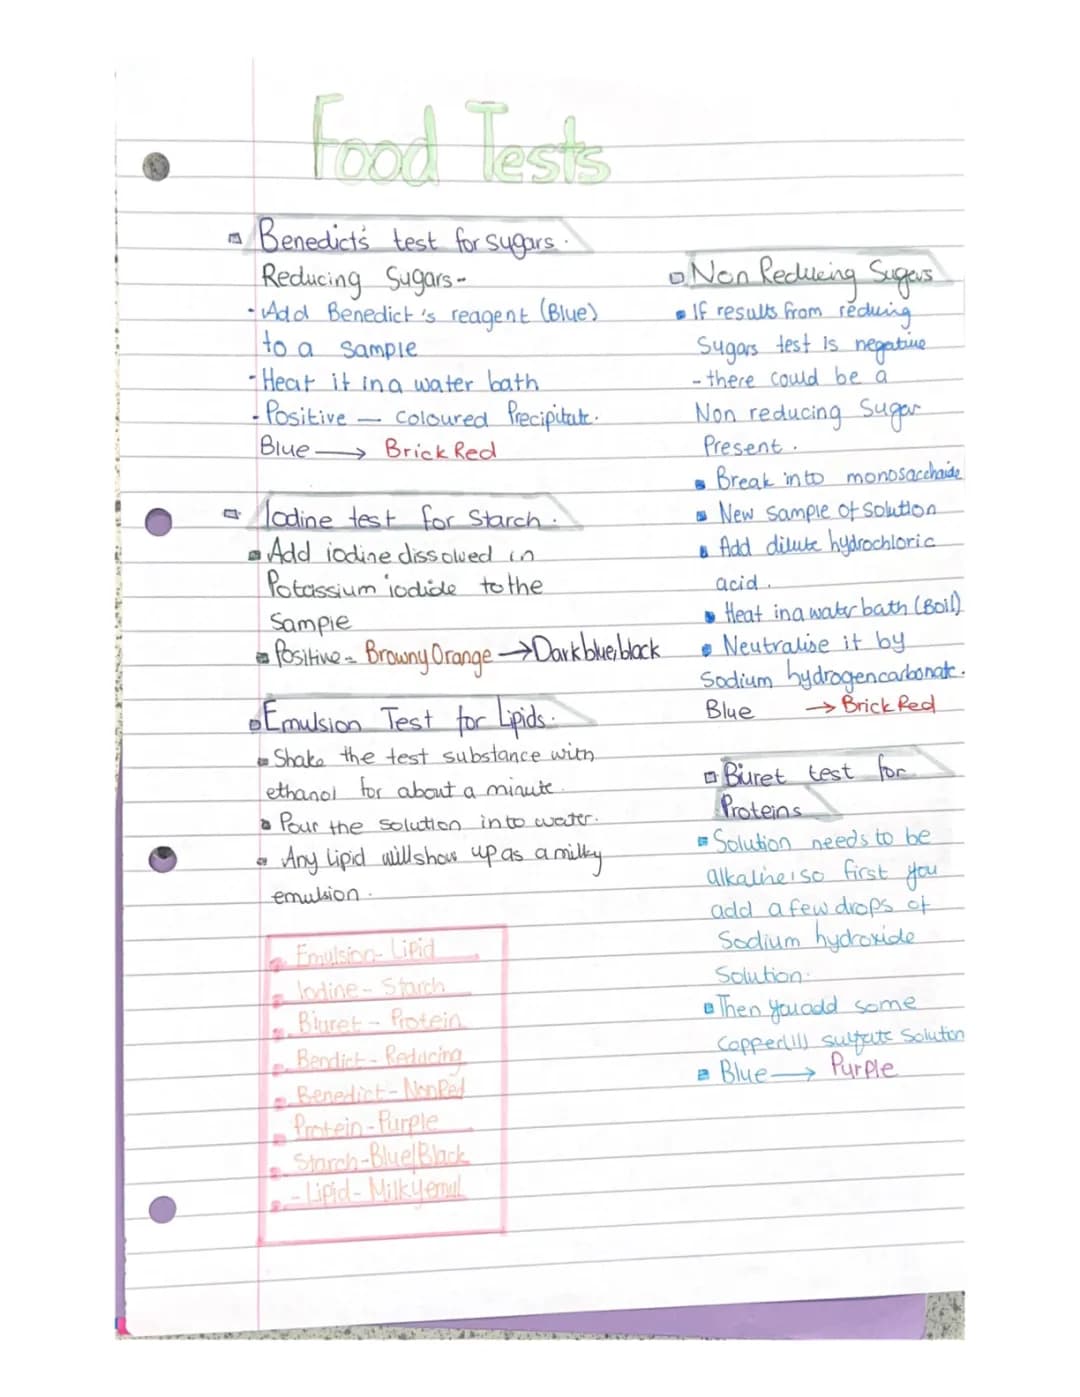 Food Tests
Benedict's test for sugars.
Reducing Sugars-
- Add Benedict's reagent (Blue)
to a sample
- Heat it in a water bath
- Positive — coloured Precipitate.
Blue → Brick Red
Iodine test for Starch.
Add iodine dissolved in
Potassium iodide to the
Sample
Positive - Browny Orange → Dark blue/black
Emulsion Test for Lipids.
Shake the test substance with
ethanol for about a minute.
Pour the solution into water.
Any lipid will show up as a milky
emulsion.
Emulsion - Lipid
Iodine - Starch
Biuret - Protein
Bendict - Reducing
Benedict - NonRed
Protein - Purple
Starch - Blue/Black
- Lipid - Milky emul
Non Reducing Sugars
If results from reducing
Sugars test is negative
- there could be a
Non reducing Sugar
Present.
Break into monosacchaide
New sample of solution
Add dilute hydrochloric
acid.
Heat in a water bath (Boil)
Neutralise it by
Sodium hydrogencarbonate.
Blue → Brick Red
Biuret test for
Proteins
Solution needs to be
alkaline, so first you
add a few drops of
Sodium hydroxide
Solution.
Then you add some
Copper(II) sulfate solution
Blue → Purple